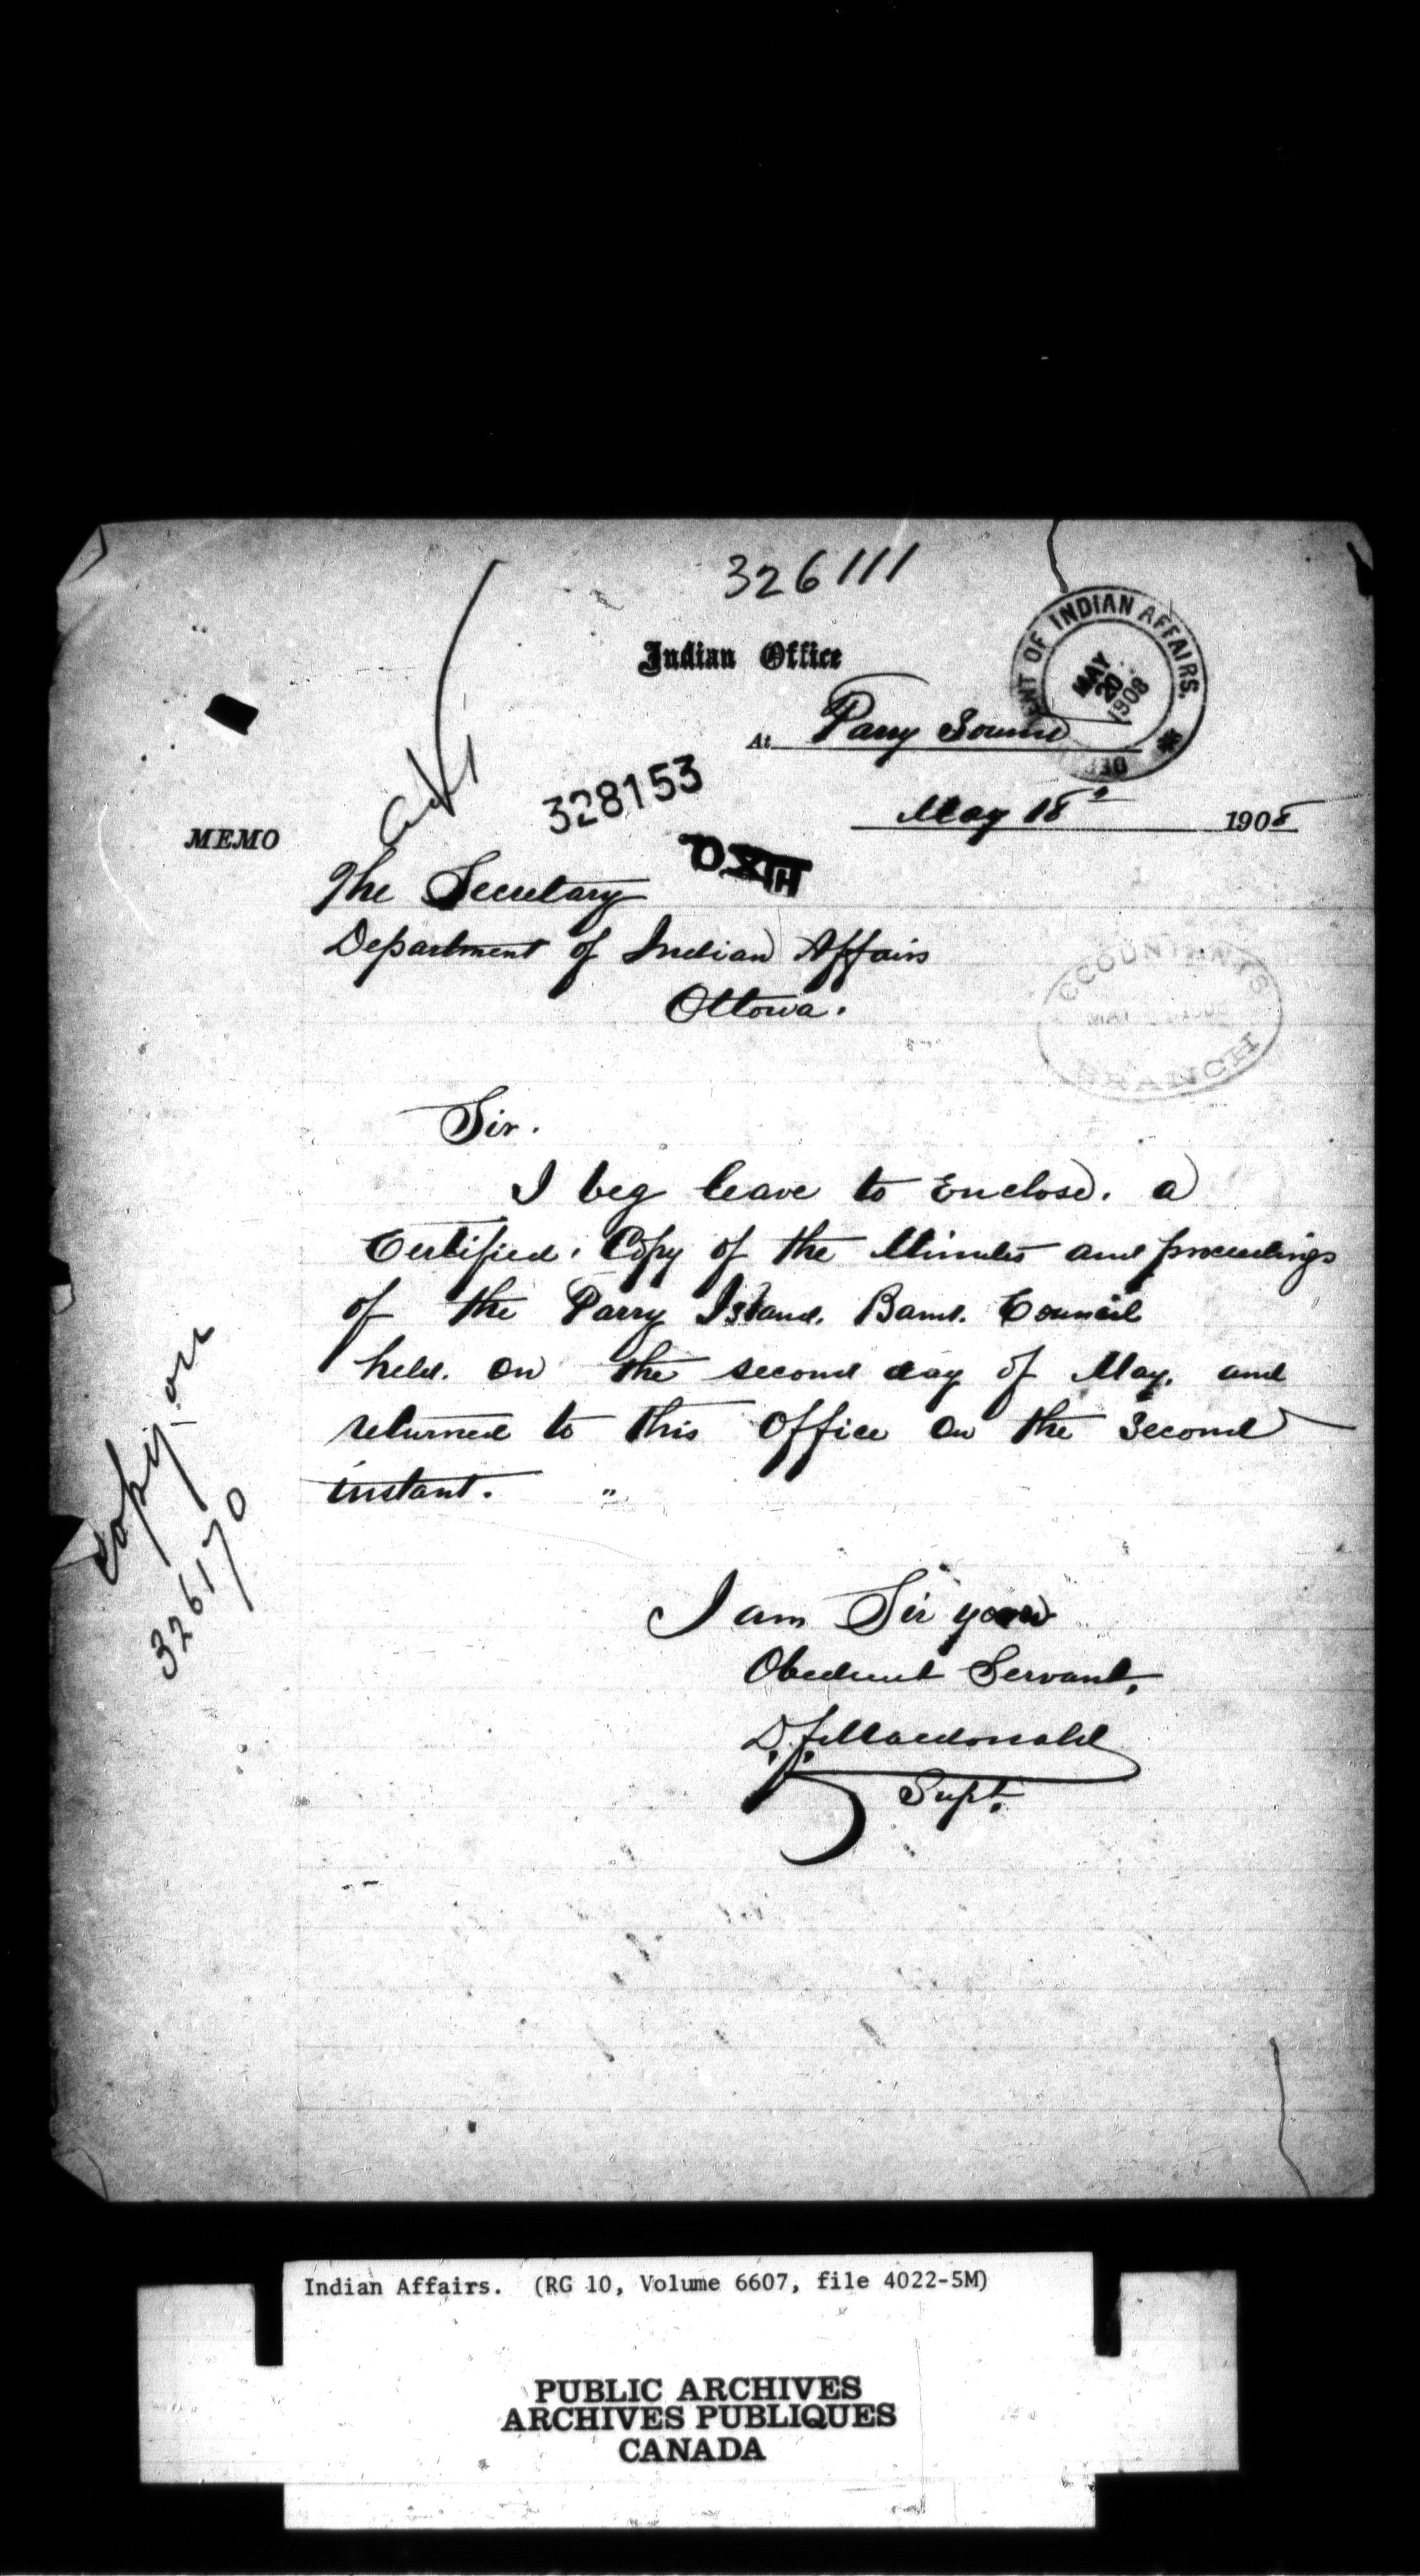 326111
Indian Office
DEPARTMENT OF INDIAN AFFAIRS.
MAY 20 1908
At Parry Sound
328153
May 18 1908
MEMO
The Secretary
Department of Indian Affairs
Ottowa.
BRANCH
Sir.
I beg leave to Enclose. a
Certified. Copy of the Minutes and proceedings
of the Parry Island. Band. Council
held. on the second day of May. and
returned to this Office on the second
instant. "
copy on
326170
I am Sir your
Obedient Servant,
D.F. Macdonald
Supt.
Indian Affairs. (RG 10, Volume 6607, file 4022-5M)
PUBLIC ARCHIVES
ARCHIVES PUBLIQUES
CANADA